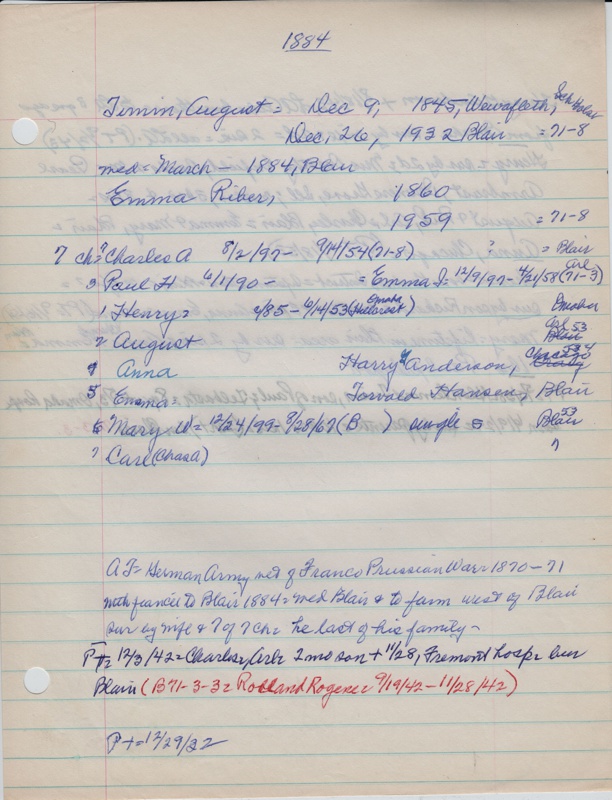 1884
Timm, August = Dec 9, 1845, Wewafleth,
Dec, 26, 1932 Blair = 71-8
med = March - 1884, Blair
Emma Riber, 1860
1959 = 71-8
7 ch = 7 Charles A 8/2/97 - 9/14/54 (71-8) = Blair
3 Paul H 6/1/90 - = Emma J = 12/9/97 - 4/21/58 (71-3) Arl
1 Henry = 2/85 - 6/14/53 (Omaha Hillcrest) Omaha
2 August Arl 53 Blair
4 Anna Harry Anderson, Chicago 53
5 Emma = Torvald Hansen, Blair
6 Mary W = 12/24/99 - 8/28/67 (B ) single = Blair 53
7 Carl (Chas A) "
A T = German Army vet of Franco Prussian War = 1870-71
with fiancée to Blair 1884 = med Blair & to farm west of Blair
sur by wife & 7 of 7 ch = he last of his family -
PT = 12/3/42 = Charles, Arl = 2 mo son + 11/28, Fremont hosp = bur
Blair (B71-3-3 = Rolland Rogene = 9/19/42 - 11/28/42)
PT = 12/29/32